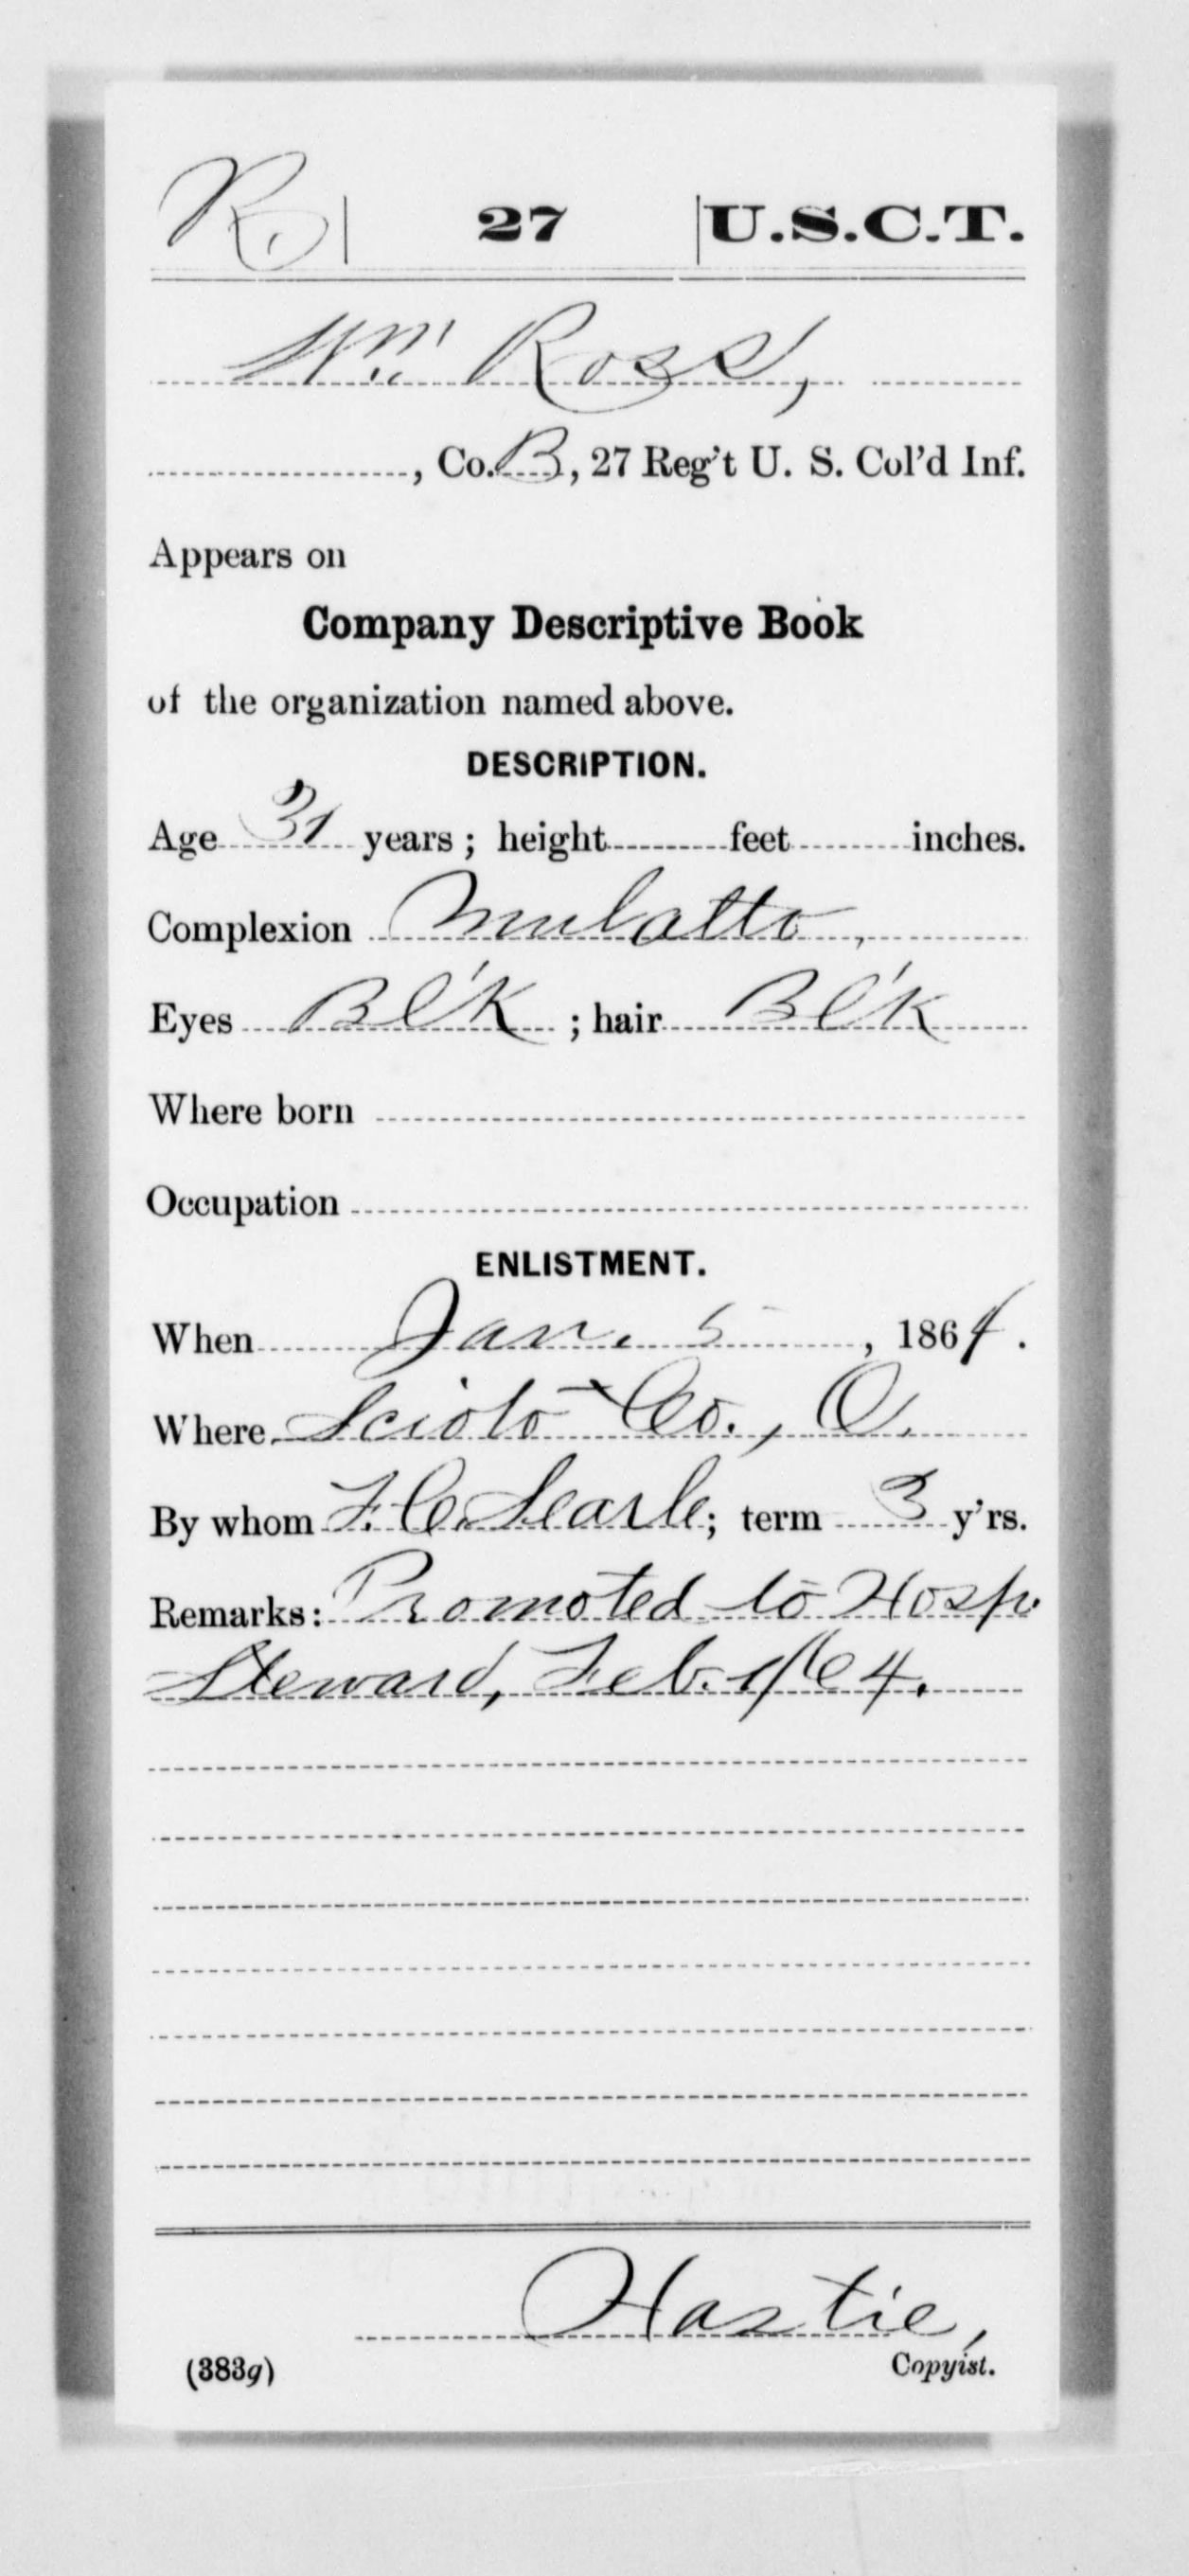 R | 27 | U.S.C.T.
Wm Ross,
, Co. B, 27 Reg't U. S. Col'd Inf.
Appears on
Company Descriptive Book
of the organization named above.
DESCRIPTION.
Age 31 years; height feet inches.
Complexion Mulatto,
Eyes Bl'k; hair Bl'k
Where born
Occupation
ENLISTMENT.
When Jan. 5, 1864.
Where Scioto Co., O.
By whom F. C. Searle; term 3 y'rs.
Remarks: Promoted to Hosp.
Steward, Feb. 1/64.
Hastie,
(383g) Copyist.